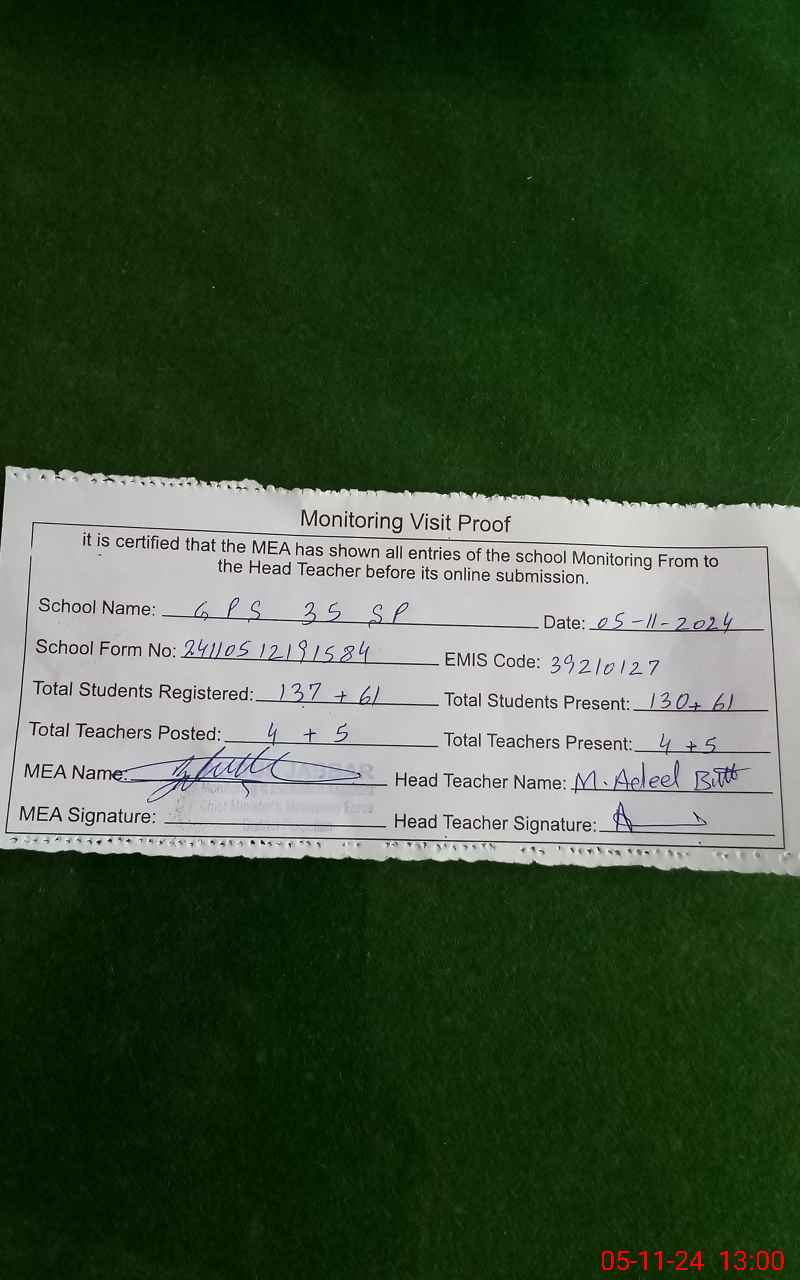 Monitoring Visit Proof
it is certified that the MEA has shown all entries of the school Monitoring From to
the Head Teacher before its online submission.
School Name: GPS 35 SP Date: 05-11-2024
School Form No: 24110512191584 EMIS Code: 39210127
Total Students Registered: 137 + 61 Total Students Present: 130+ 61
Total Teachers Posted: 4 + 5 Total Teachers Present: 4 +5
MEA Name: JABBAR Head Teacher Name: M. Adeel Butt
MEA Signature: Head Teacher Signature:
05-11-24 13:00